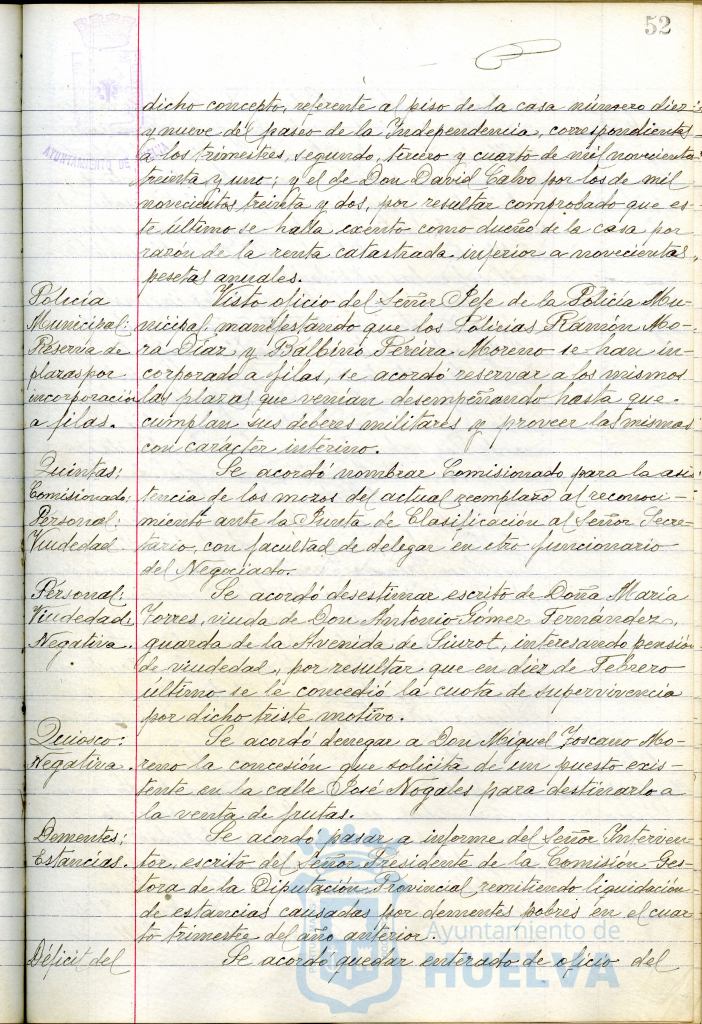 52
AYUNTAMIENTO DE HUELVA
dicho concepto, referente al piso de la casa número diez
y nueve del paseo de la Independencia, correspondientes
a los trimestres, segundo, tercero y cuarto de mil novecientos
treinta y uno; y el de Don David Calvo por los de mil
novecientos treinta y dos, por resultar comprobado que es-
te último se halla exento como dueño de la casa por
razón de la renta catastrada inferior a novecientas
pesetas anuales.
Policía
Municipal:
Reserva de
plazas por
incorporación
a filas.
Visto oficio del Señor Jefe de la Policía Mu-
nicipal manifestando que los Policías Ramón Mo-
ra Díaz y Balbino Pereira Moreno se han in-
corporado a filas, se acordó reservar a los mismos
las plazas que venían desempeñando hasta que
cumplan sus deberes militares y proveer las mismas
con carácter interino.
Quintas:
Comisionado:
Personal:
Viudedad
Se acordó nombrar Comisionado para la asis-
tencia de los mozos del actual reemplazo al reconoci-
miento ante la Junta de Clasificación al Señor Secre-
tario, con facultad de delegar en otro funcionario
del Negociado.
Personal:
Viudedad:
Negativa.
Se acordó desestimar escrito de Doña María
Torres, viuda de Don Antonio Gómez Fernández,
guarda de la Avenida de Siurot, interesando pensión
de viudedad, por resultar que en diez de Febrero
último se le concedió la cuota de supervivencia
por dicho triste motivo.
Quiosco:
Negativa.
Se acordó denegar a Don Miguel Toscano Mo-
reno la concesión que solicita de un puesto exis-
tente en la calle José Nogales para destinarlo a
la venta de frutas.
Dementes:
Estancias.
Se acordó pasar a informe del Señor Interven-
tor, escrito del Señor Presidente de la Comisión Ges-
tora de la Diputación Provincial remitiendo liquidación
de estancias causadas por dementes pobres en el cuar-
to trimestre del año anterior.
Déficit del
Se acordó quedar enterado de oficio del
Ayuntamiento de
HUELVA